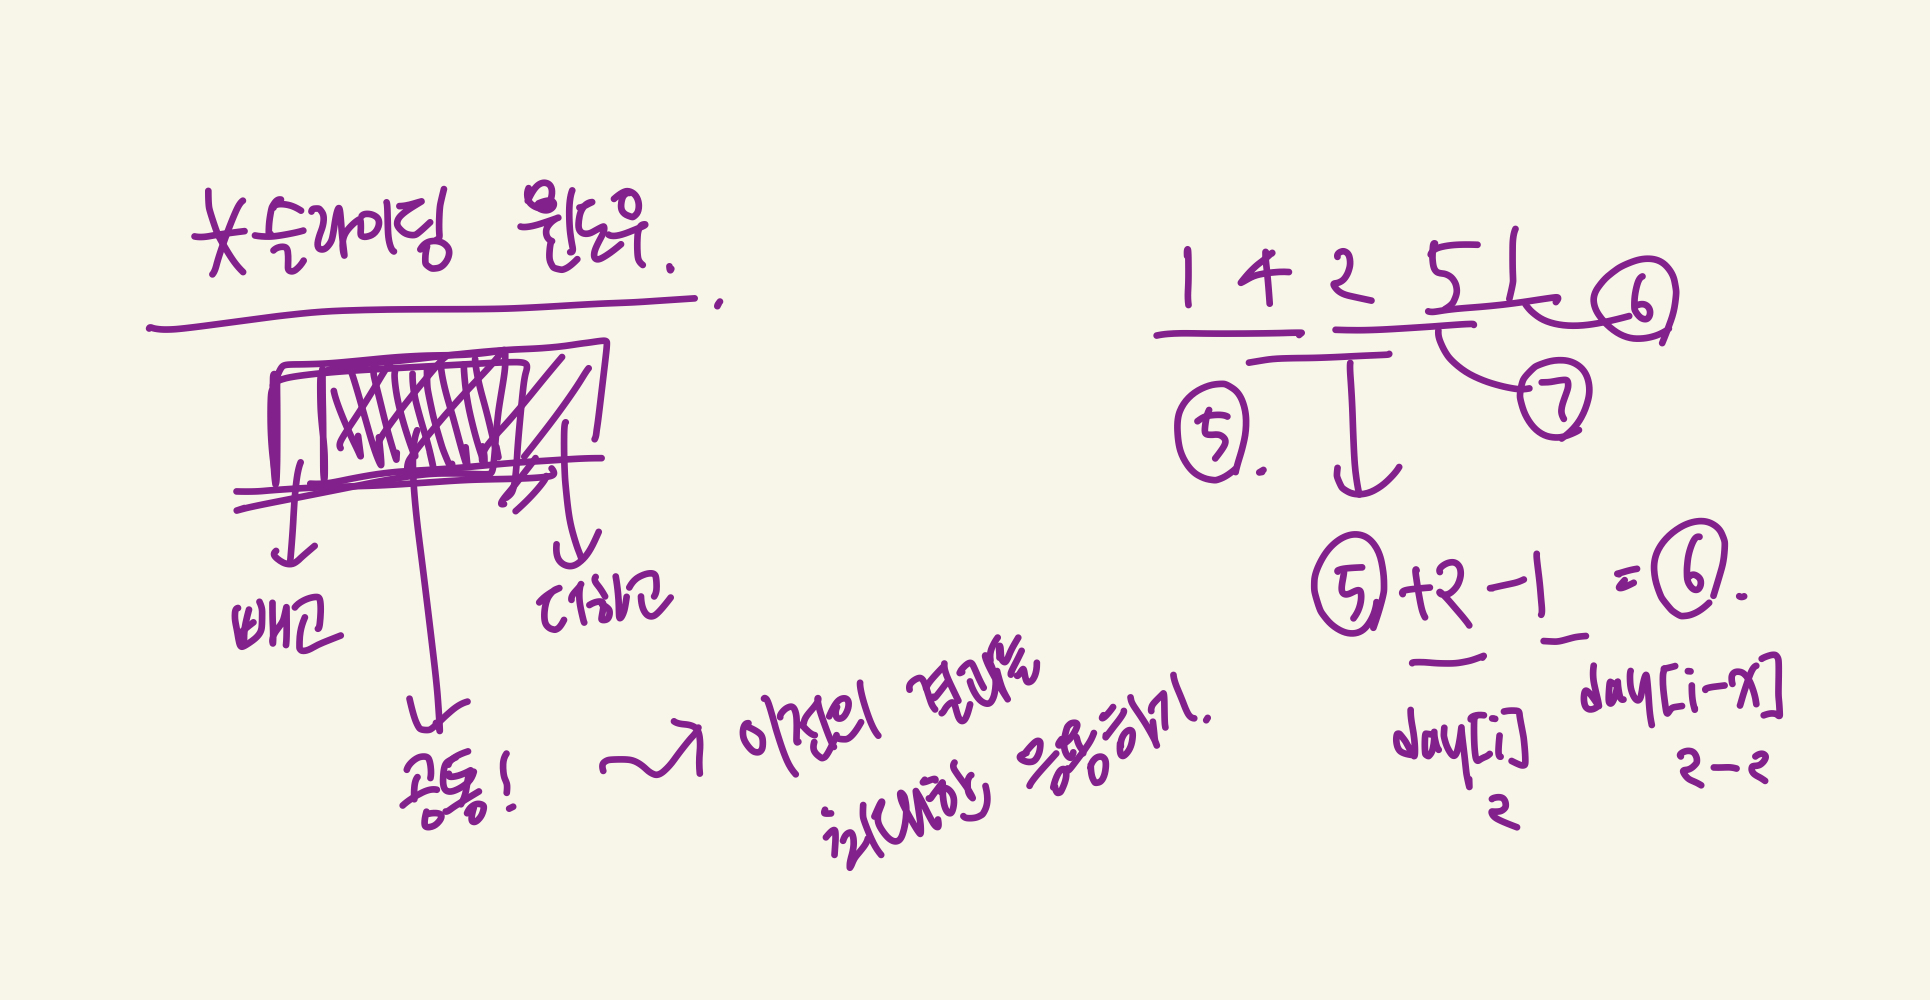 *슬라이딩 윈도우.
빼고
더하고
공통!
이전의 결과를
최대한 응용하기.
1 4 2 5 1
6
7
5.
5 + 2 - 1 = 6.
day[i]
day[i-x]
2
2-2